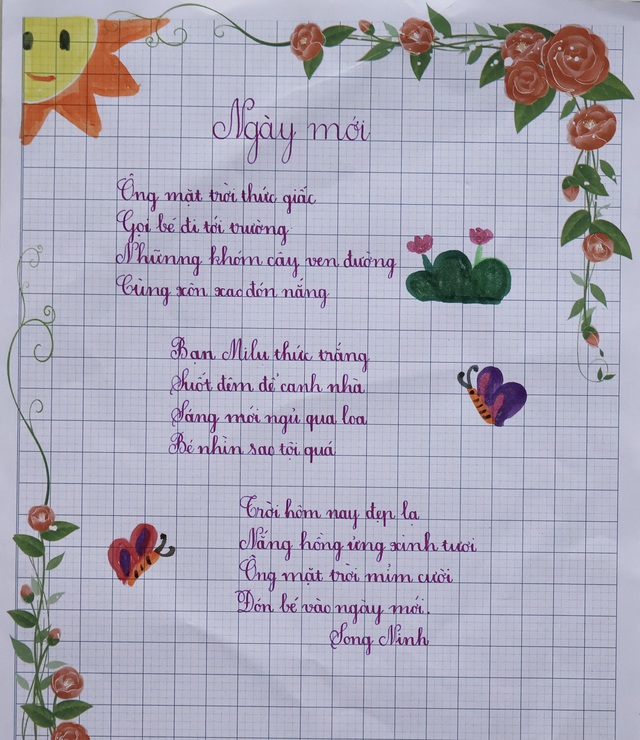 Ngày mới
Ông mặt trời thức giấc
Gọi bé đi tới trường
Nhữnng khóm cây ven đường
Cùng xôn xao đón nắng
Bạn Milu thức trắng
Suốt đêm để canh nhà
Sáng mới ngủ qua loa
Bé nhìn sao tội quá
Trời hôm nay đẹp lạ
Nắng hồng ửng xinh tươi
Ông mặt trời mỉm cười
Đón bé vào ngày mới.
Song Ninh